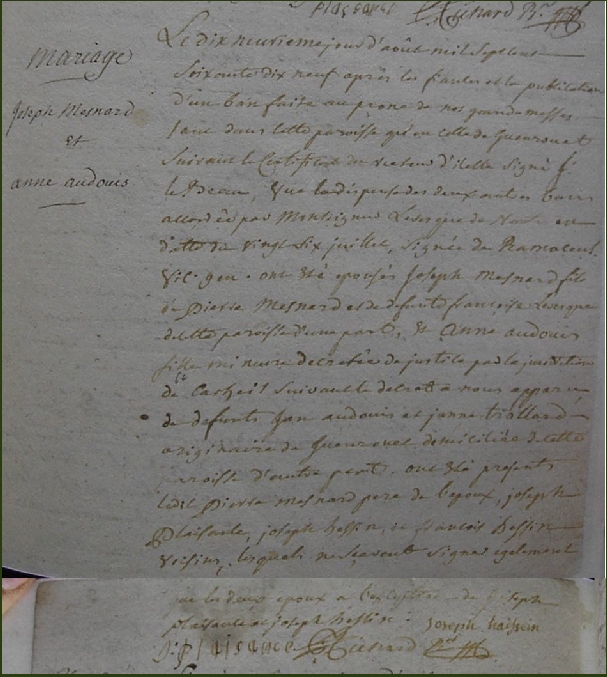 plaisance Richard Rr
Mariage
Joseph Mesnard
et
anne audouis
Le dix neuvieme jour d'août mil sept cens
soixante dix neuf après les fiançailles et la publication
d'un ban faite au prone de nos grandes messes
tant dans cette paroisse qu'en celle de Guenrouet
suivant le Certificat du recteur d'icelle signé
le Beau, Vue la dispense des deux autres bans
accordée par Monseigneur Levesque de Nante en
datte du vingt six juillet, signée de Ramaceul
Vic. gen. ont été epousés Joseph Mesnard fils
de Pierre Mesnard et de defunte françoise Levesque
de cette paroisse d'une part, Et Anne audouis
fille mineure decretée de justice par la juridiction
de Carheil suivant le decret a nous apparu
de defunts Jan audouis et janne trillard
originaire de Guenrouet domiciliée de cette
paroisse d'autre part, ont été presents
ledit Pierre Mesnard pere de l'epoux, joseph
Plaisance, joseph hessin, et francois hessin
voisins, lesquels ne sçavent signer egalement
que les deux epoux a l'exception de joseph
plaisance et joseph hessin. Joseph haissein
J: plaisance Richard Rr